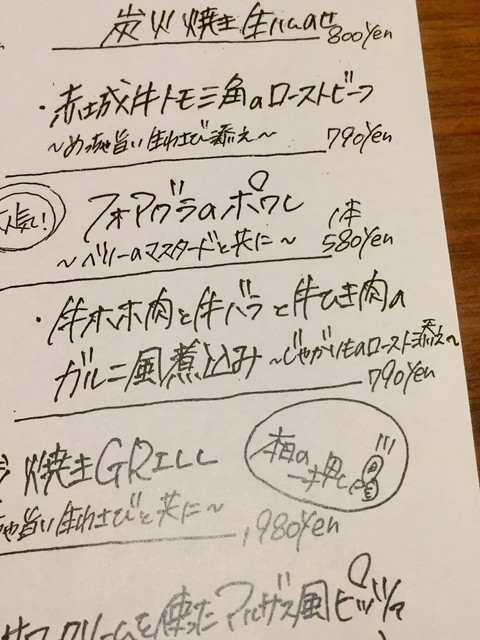 炭火焼き生ハムのせ
800yen
・赤城牛トモ三角のローストビーフ
～めっちゃ旨い生わさび添え～
790yen
人気!
フォアグラのポワレ
1本
～ベリーのマスタードと共に～
580yen
・牛ホホ肉と牛バラと牛ひき肉の
ガルニ風煮込み ～じゃがいものロースト添え～
790yen
焼きGRILL
本日の
一押し!!!
っちゃ旨い生わさびと共に～
1,980yen
クリームを使ったアルザス風ピッツァ